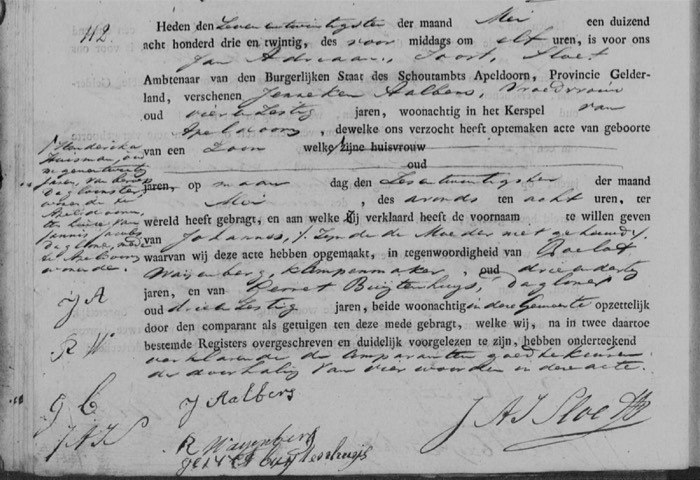 112.
Heden den Zevenentwintigsten der maand Mei een duizend
acht honderd drie en twintig, des voor middags om elf uren, is voor ons
Jan Adriaan Joost, Sloet
Ambtenaar van den Burgerlijken Staat des Schoutambts Apeldoorn, Provincie Gelder-
land, verschenen Jenneken Aalbers, Vroedvrouw
oud vier en Zestig jaren, woonachtig in het Kerspel van
Apeldoorn, dewelke ons verzocht heeft optemaken acte van geboorte
van een Zoon welke zijne huisvrouw
oud
jaren, op maan dag den Zesentwintigsten der maand
Mei, des avonds ten acht uren, ter
wereld heeft gebragt, en aan welke zij verklaard heeft de voornaam te willen geven
van Johannes, /. Zynde de Moeder niet gehuwd /.
waarvan wij deze acte hebben opgemaakt, in tegenwoordigheid van Roelof
klompenmaker, oud drieendertig
jaren, en van Gerret Buijtenhuijs, daglooner
oud drie en Zestig jaren, beide woonachtig in deze Gemeente opzettelijk
door den comparant als getuigen ten deze mede gebragt, welke wij, na in twee daartoe
bestemde Registers overgeschreven en duidelijk voorgelezen te zijn, hebben onderteekend
verklarende de Comparanten goedtekeuren
de doorhaling van vier woorden in deze acte.
/. Hendrika
Huisman, oud
jaren, van beroep
Dagloonster,
te
Apeldoorn
J A
R W
g B
J A S
J Aalbers
R
gerret buijtenhuijs
J A J Sloet